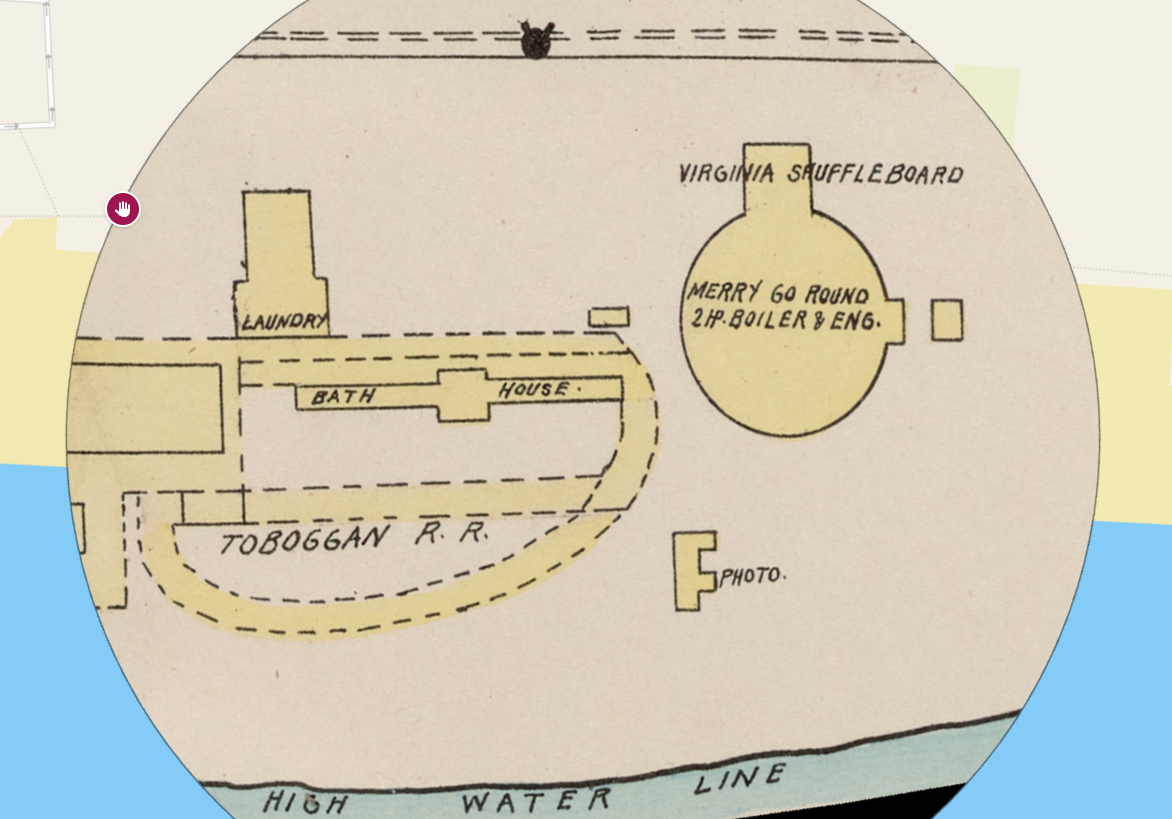 VIRGINIA SHUFFLEBOARD
MERRY GO ROUND
2HP. BOILER & ENG.
LAUNDRY
BATH HOUSE.
TOBOGGAN R. R.
PHOTO.
HIGH WATER LINE